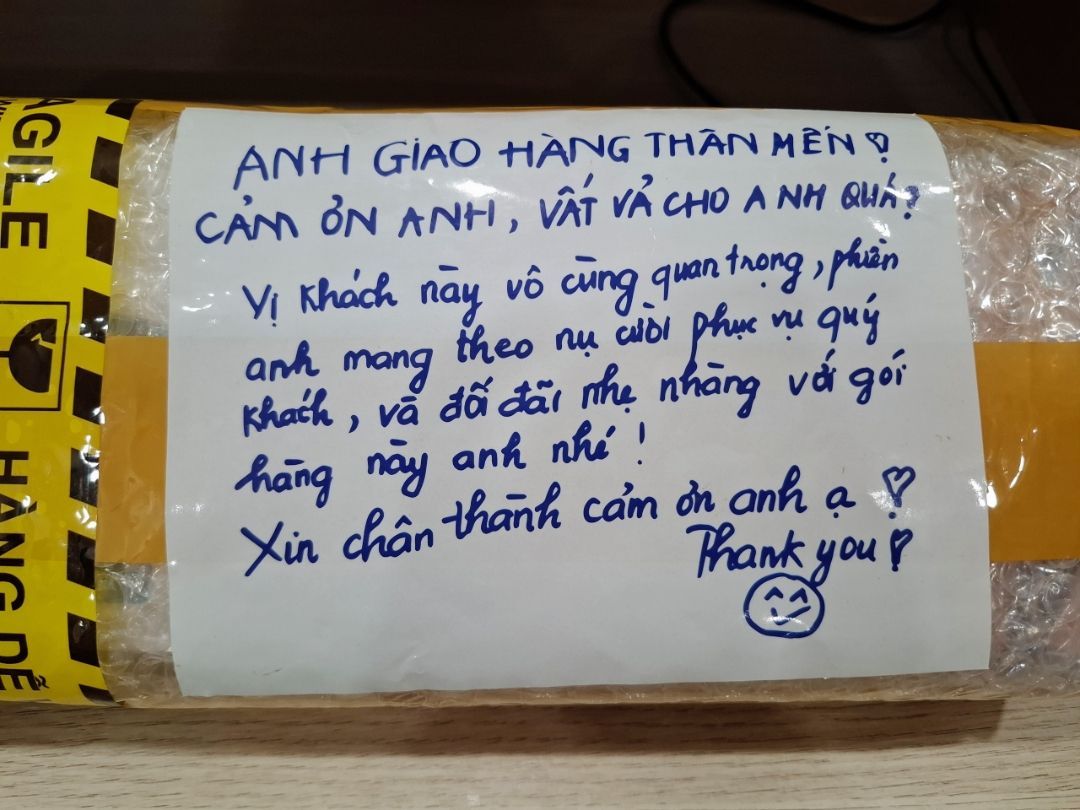 ANH GIAO HÀNG THÂN MẾN ♡
CẢM ƠN ANH, VẤT VẢ CHO ANH QUÁ?
Vị khách này vô cùng quan trọng, phiền
anh mang theo nụ cười phục vụ quý
khách, và đối đãi nhẹ nhàng với gói
hàng này anh nhé!
Xin chân thành cảm ơn anh ạ ♡
Thank you ♡
AGLE
HÀNG DỄ